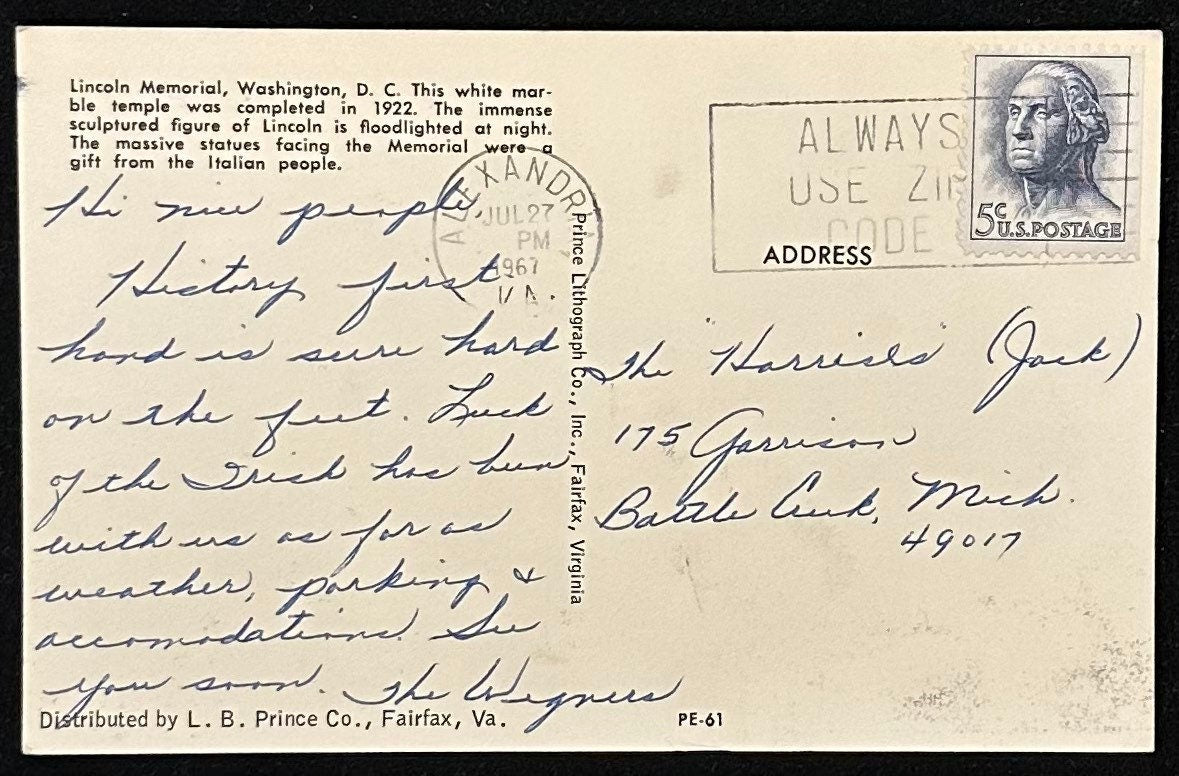 Lincoln Memorial, Washington, D. C. This white mar-
ble temple was completed in 1922. The immense
sculptured figure of Lincoln is floodlighted at night.
The massive statues facing the Memorial were a
gift from the Italian people.
Hi nice people,
History first
hand is sure hard
on the feet. Luck
of the Irish has been
with us as far as
weather, parking &
accomodations. See
you soon. The Wegners
Distributed by L. B. Prince Co., Fairfax, Va.
ALEXANDRIA
JUL 27
PM
1967
VA.
Prince Lithograph Co., Inc., Fairfax, Virginia
ALWAYS
USE ZIP
CODE
5c
U.S. POSTAGE
ADDRESS
The "Harrisés" (Jack)
175 Garrison
Battle Creek, Mich.
49017
PE-61